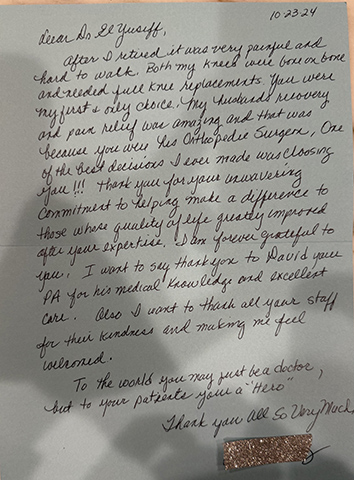 10-23-24
Dear Dr El Yusiff,
After I retired it was very painful and
hard to walk. Both my knees were bone on bone
and needed full knee replacements. You were
my first & only choice. My husbands recovery
and pain relief was amazing and that was
because you were his Orthopedic Surgeon, One
of the best decisions I ever made was choosing
you!!! Thank you for your unwavering
Commitment to helping make a difference to
those whose quality of life greatly improved
after your expertise. I am forever grateful to
you. I want to say thank you to David your
PA for his medical knowledge and excellent
care. Also I want to thank all your staff
for their kindness and making me feel
welcomed.
To the world you may just be a doctor,
but to your patients your a "Hero"
Thank you All So Very Much,